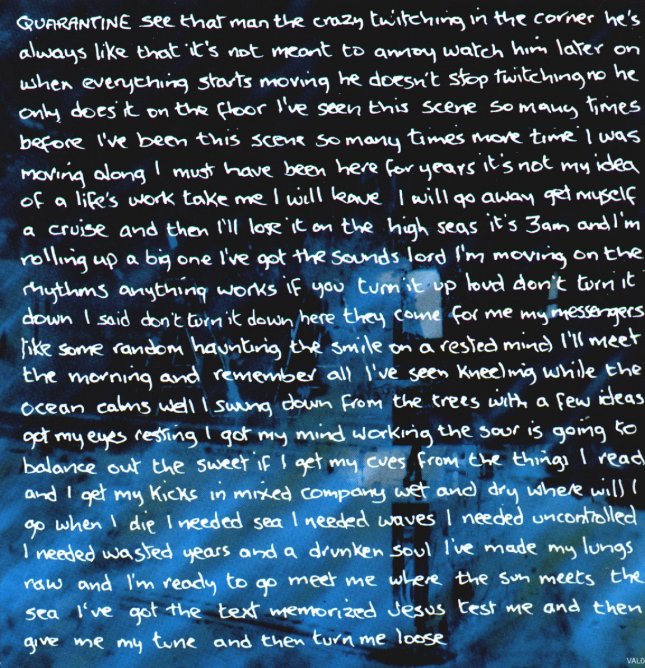 QUARANTINE see that man the crazy twitching in the corner he's
always like that it's not meant to annoy watch him later on
when everything starts moving he doesn't stop twitching no he
only does it on the floor I've seen this scene so many times
before I've been this scene so many times more time I was
moving along I must have been here for years it's not my idea
of a life's work take me I will leave I will go away get myself
a cruise and then I'll lose it on the high seas it's 3am and I'm
rolling up a big one I've got the sounds lord I'm moving on the
rhythms anything works if you turn it up loud don't turn it
down I said don't turn it down here they come for me my messengers
like some random haunting the smile on a rested mind I'll meet
the morning and remember all I've seen kneeling while the
ocean calms well I swung down from the trees with a few ideas
got my eyes resting I got my mind working the sour is going to
balance out the sweet if I get my cues from the things I read
and I get my kicks in mixed company wet and dry where will I
go when I die I needed sea I needed waves I needed uncontrolled
I needed wasted years and a drunken soul I've made my lungs
raw and I'm ready to go meet me where the sun meets the
sea I've got the text memorized Jesus test me and then
give me my tune and then turn me loose